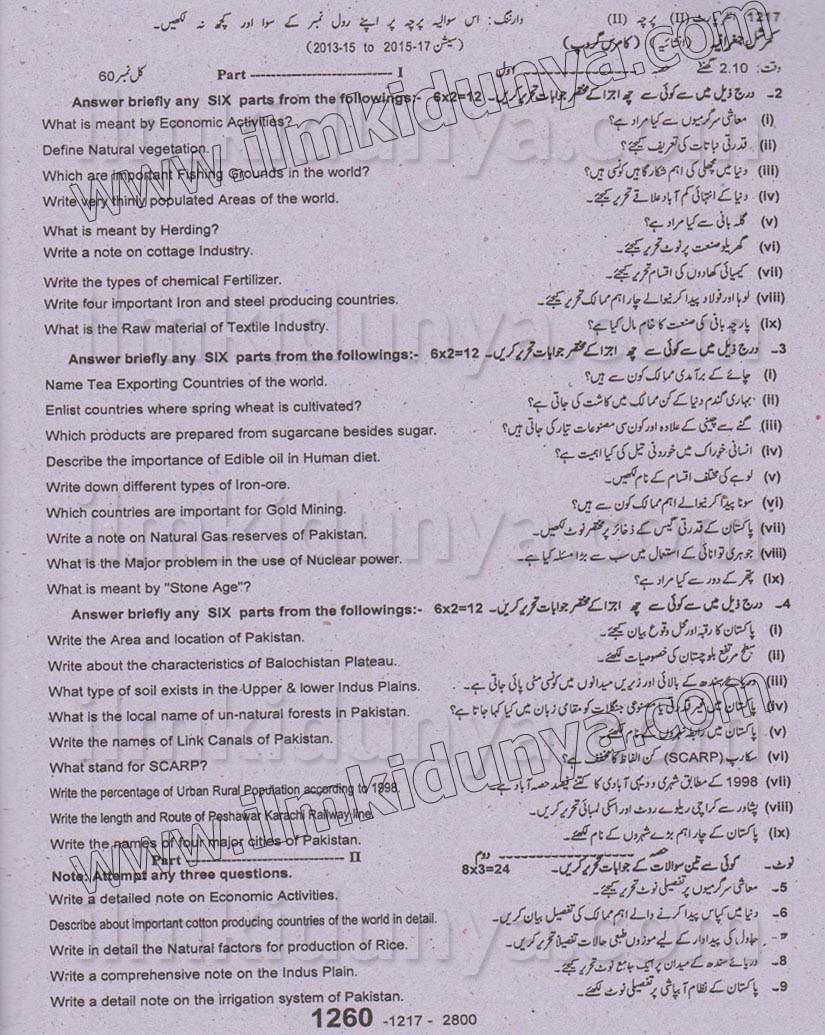 1217 وارننگ: اس سوالیہ پرچہ پر اپنے رول نمبر کے سوا اور کچھ نہ لکھیں۔ (پارٹ II) پرچہ (II)
کمرشل جغرافیہ (انشائیہ) (کامرس گروپ) (سیشن 2013-15 to 2015-17)
وقت: 2.10 گھنٹے حصہ اول Part ---------------- I کل نمبر 60
2۔ درج ذیل میں سے کوئی سے چھ اجزا کے مختصر جوابات تحریر کریں۔ 6x2=12 Answer briefly any SIX parts from the followings:-
What is meant by Economic Activities? (i) معاشی سرگرمیوں سے کیا مراد ہے؟
Define Natural vegetation. (ii) قدرتی نباتات کی تعریف کیجئے؟
Which are important Fishing Grounds in the world? (iii) دنیا میں مچھلی کی اہم شکار گاہیں کونسی ہیں؟
Write very thinly populated Areas of the world. (iv) دنیا کے انتہائی کم آباد علاقے تحریر کیجئے۔
What is meant by Herding? (v) گلہ بانی سے کیا مراد ہے؟
Write a note on cottage Industry. (vi) گھریلو صنعت پر نوٹ تحریر کیجئے۔
Write the types of chemical Fertilizer. (vii) کیمیائی کھادوں کی اقسام تحریر کیجئے۔
Write four important Iron and steel producing countries. (viii) لوہا اور فولاد پیدا کرنیوالے چار اہم ممالک تحریر کیجئے۔
What is the Raw material of Textile Industry. (ix) پارچہ بانی کی صنعت کا خام مال کیا ہے؟
3۔ درج ذیل میں سے کوئی سے چھ اجزا کے مختصر جوابات تحریر کریں۔ 6x2=12 Answer briefly any SIX parts from the followings:-
Name Tea Exporting Countries of the world. (i) چائے کے برآمدی ممالک کون سے ہیں؟
Enlist countries where spring wheat is cultivated? (ii) بہاری گندم دنیا کے کن ممالک میں کاشت کی جاتی ہے؟
Which products are prepared from sugarcane besides sugar. (iii) گنے سے چینی کے علاوہ اور کون سی مصنوعات تیار کی جاتی ہیں؟
Describe the importance of Edible oil in Human diet. (iv) انسانی خوراک میں خوردنی تیل کی کیا اہمیت ہے؟
Write down different types of Iron-ore. (v) لوہے کی مختلف اقسام کے نام لکھیں۔
Which countries are important for Gold Mining. (vi) سونا پیدا کرنیوالے اہم ممالک کون سے ہیں؟
Write a note on Natural Gas reserves of Pakistan. (vii) پاکستان کے قدرتی گیس کے ذخائر پر مختصر نوٹ لکھیں۔
What is the Major problem in the use of Nuclear power. (viii) جوہری توانائی کے استعمال میں سب سے بڑا مسئلہ کیا ہے۔
What is meant by "Stone Age"? (ix) پتھر کے دور سے کیا مراد ہے؟
4۔ درج ذیل میں سے کوئی سے چھ اجزا کے مختصر جوابات تحریر کریں۔ 6x2=12 Answer briefly any SIX parts from the followings:-
Write the Area and location of Pakistan. (i) پاکستان کا رقبہ اور محل وقوع بیان کیجئے۔
Write about the characteristics of Balochistan Plateau. (ii) سطح مرتفع بلوچستان کی خصوصیات لکھئے۔
What type of soil exists in the Upper & lower Indus Plains. (iii) دریائے سندھ کے بالائی اور زیریں میدانوں میں کونسی مٹی پائی جاتی ہے۔
What is the local name of un-natural forests in Pakistan. (iv) پاکستان میں غیر قدرتی یا مصنوعی جنگلات کو مقامی زبان میں کیا کہا جاتا ہے؟
Write the names of Link Canals of Pakistan. (v) پاکستان میں رابطہ نہروں کے نام لکھئے۔
What stand for SCARP? (vi) سکارپ (SCARP) کن الفاظ کا مخفف ہے؟
Write the percentage of Urban Rural Population according to 1998. (vii) 1998 کے مطابق شہری و دیہی آبادی کا کتنے فیصد حصہ آباد ہے۔
Write the length and Route of Peshawar Karachi Railway line. (viii) پشاور سے کراچی ریلوے روٹ اور اسکی لمبائی تحریر کریں۔
Write the names of four major cities of Pakistan. (ix) پاکستان کے چار اہم بڑے شہروں کے نام لکھئے۔
Part ---------------- II حصہ دوم
Note: Attempt any three questions. 8x3=24 نوٹ۔ کوئی سے تین سوالات کے جوابات تحریر کریں۔
Write a detailed note on Economic Activities. 5۔ معاشی سرگرمیوں پر تفصیلی نوٹ تحریر کیجئے۔
Describe about important cotton producing countries of the world in detail. 6۔ دنیا میں کپاس پیدا کرنے والے اہم ممالک کی تفصیل بیان کریں۔
Write in detail the Natural factors for production of Rice. 7۔ چاول کی پیداوار کے لیے موزوں طبعی حالات تفصیلاً تحریر کریں۔
Write a comprehensive note on the Indus Plain. 8۔ دریائے سندھ کے میدان پر ایک جامع نوٹ تحریر کیجئے۔
Write a detail note on the irrigation system of Pakistan. 9۔ پاکستان کے نظام آبپاشی پر تفصیلی نوٹ لکھئے۔
1260 -1217 - 2800
www.ilmkidunya.com
www.ilmkidunya.com
ilmkidunya.com
ilmkidunya.com
ilmkidunya.com
ilmkidunya.com
ilmkidunya.com